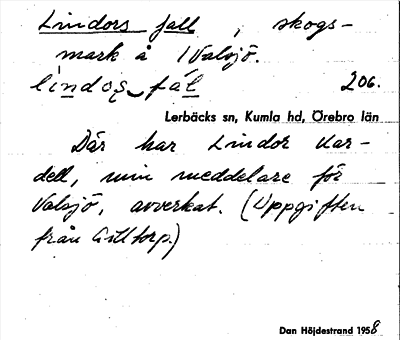 Lindors fall, skogs-
mark å Valsjö.
lindoş fál 206.
Lerbäcks sn, Kumla hd, Örebro län
Där har Lindor Kar-
dell, min meddelare för
Valsjö, avverkat. (Uppgiften
från Gilltorp.)
Dan Höjdestrand 1958